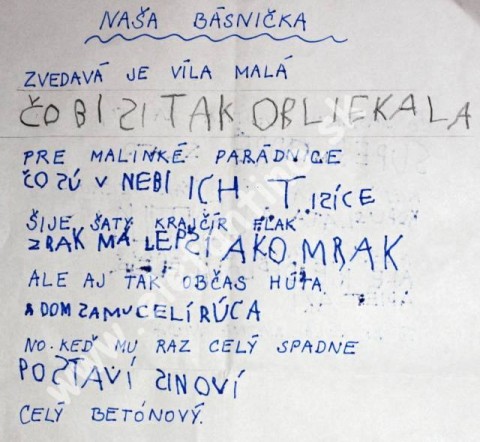 NAŠA BÁSNIČKA
ZVEDAVÁ JE VÍLA MALÁ
ČO BI SI TAK OBLIEKALA
PRE MALINKÉ PARÁDNICE
ČO SÚ V NEBÍ ICH TISÍCE
ŠIJE ŠATY KRAJČÍR FĽAK
ZRAK MÁ LEPŠÍ AKO MRAK
ALE AJ TAK OBČAS HÚTA
A DOM SAMU CELÍ RÚCA
NO. KEĎ MU RAZ CELÝ SPADNE
POSTAVÍ SI NOVÍ
CELÝ BETÓNOVÝ.